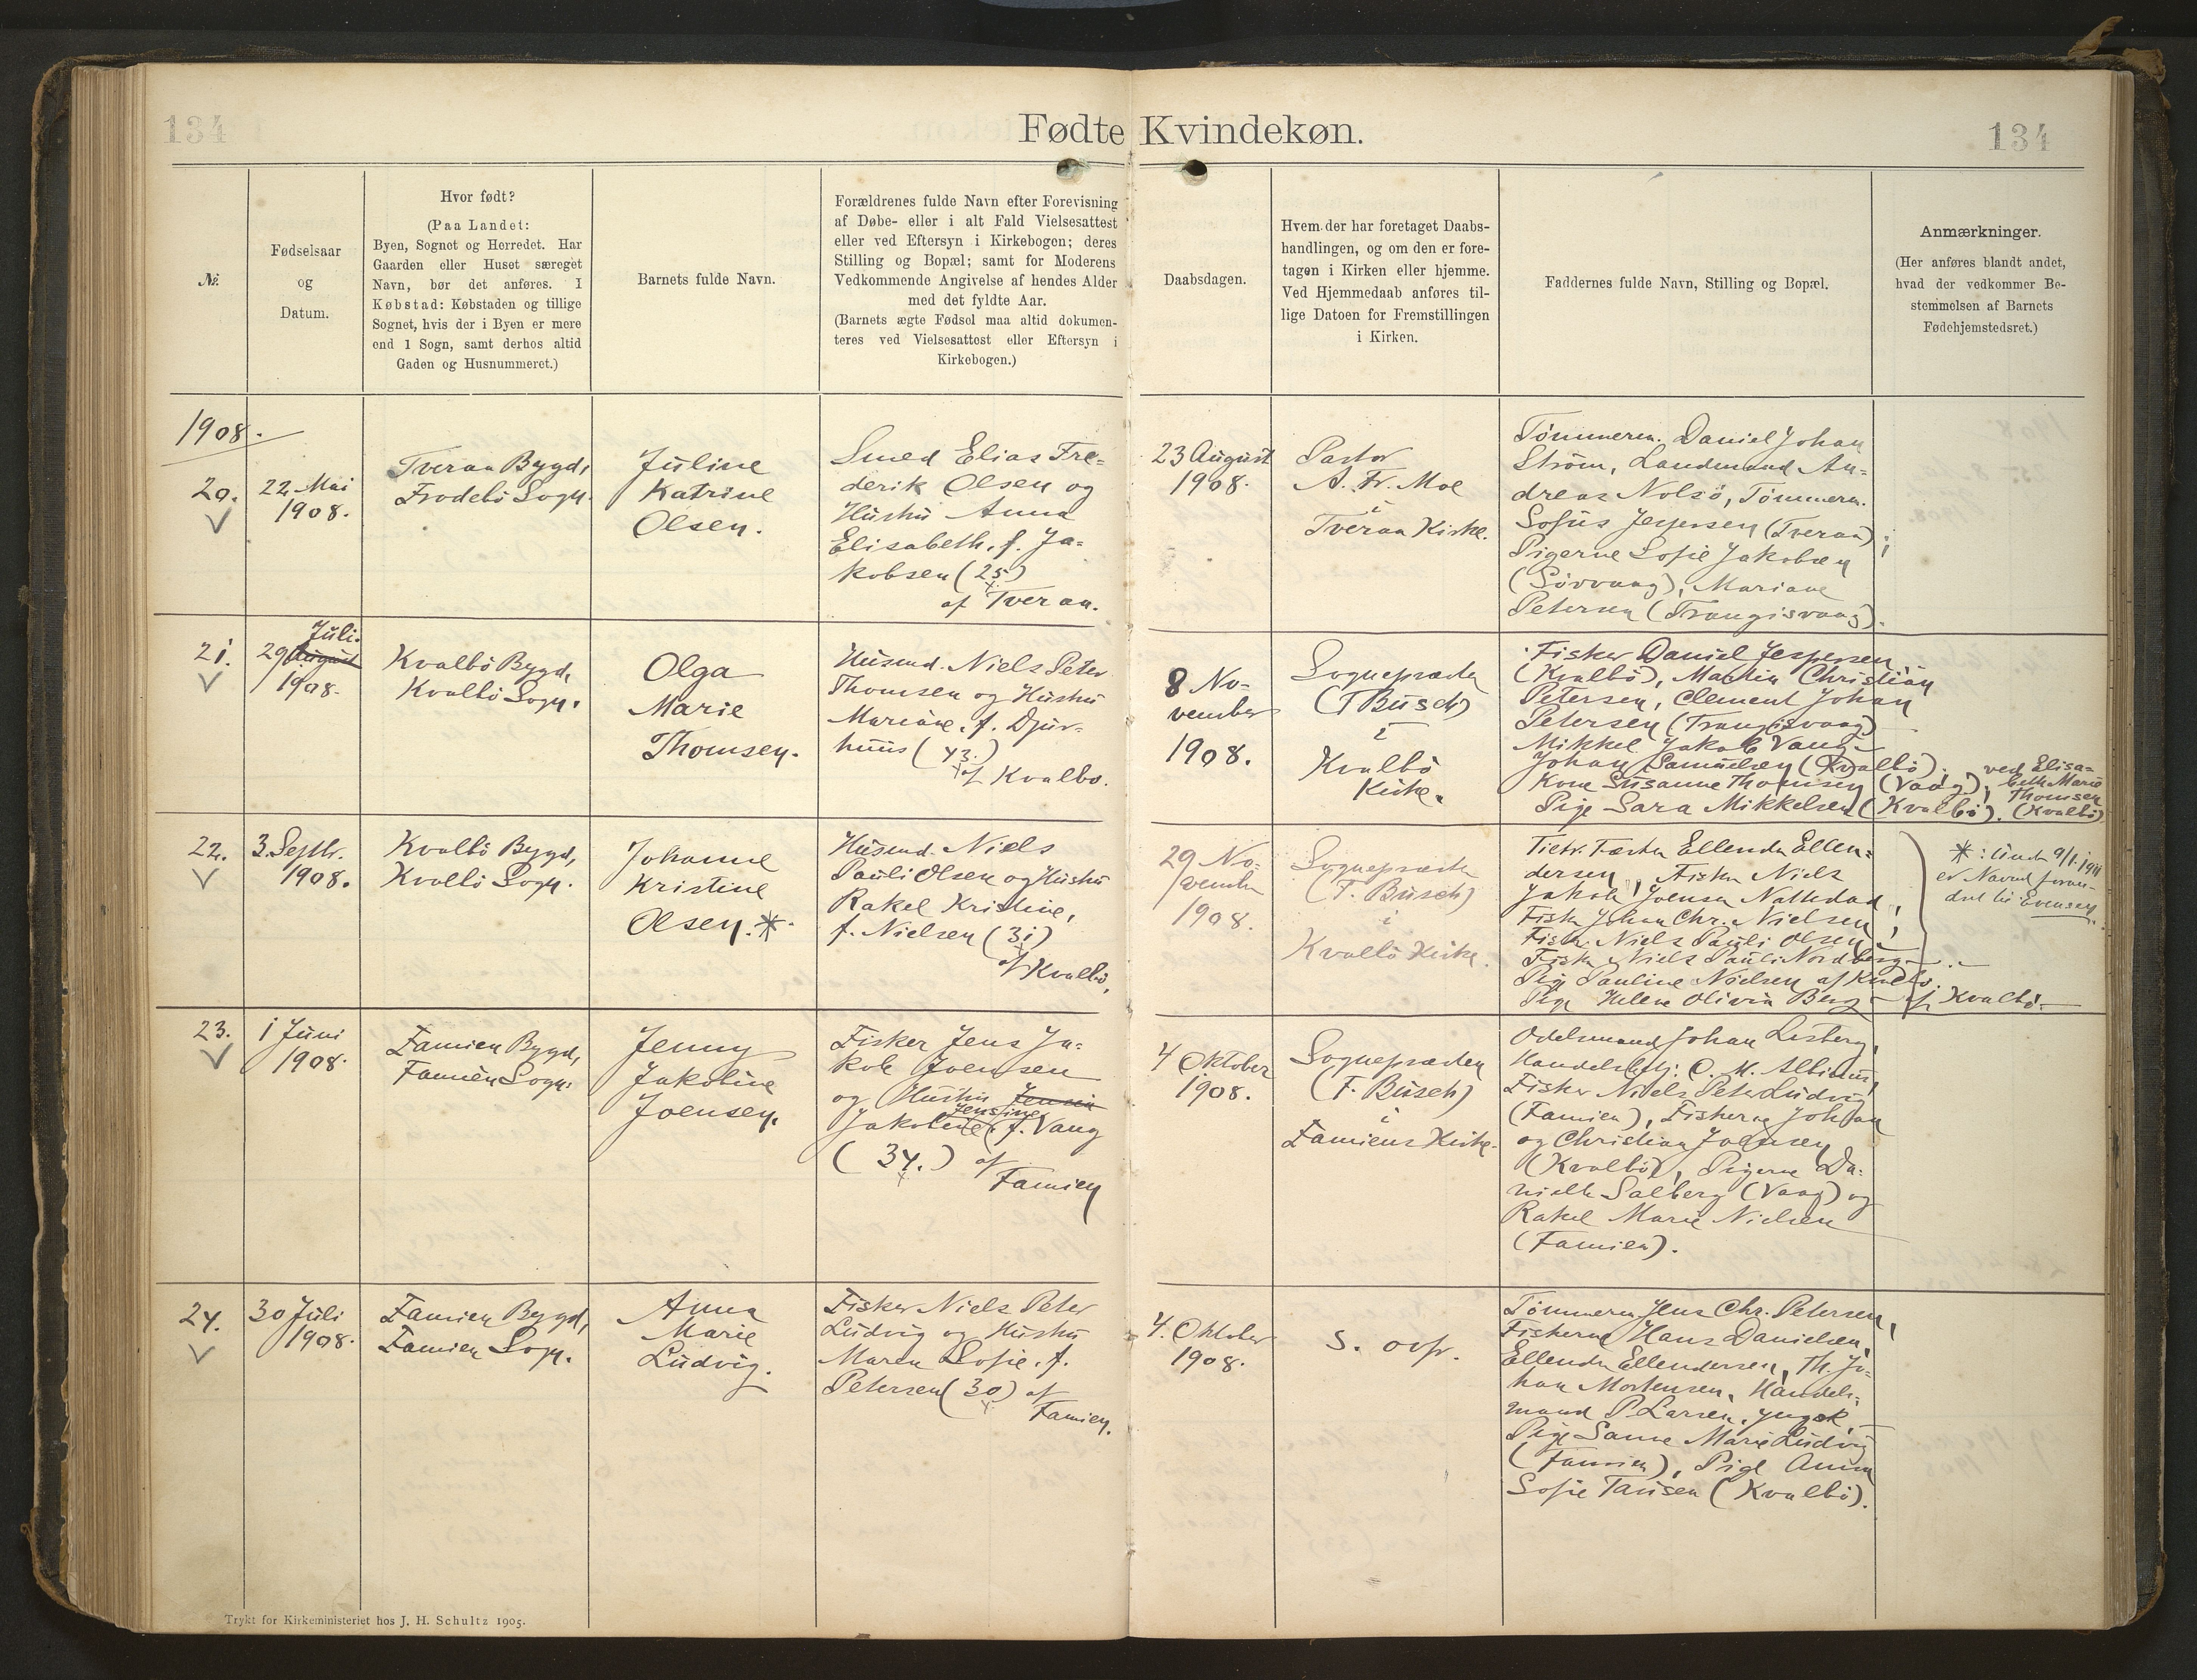 134
Fødte Kvindekøn.
134
№
Fødselsaar
og
Datum.
Hvor født?
(Paa Landet:
Byen, Sognet og Herredet. Har
Gaarden eller Huset særeget
Navn, bør det anføres. I
Købstad: Købstaden og tillige
Sognet, hvis der i Byen er mere
end 1 Sogn, samt derhos altid
Gaden og Husnummeret.)
Barnets fulde Navn.
Forældrenes fulde Navn efter Forevisning
af Døbe- eller i alt Fald Vielsesattest
eller ved Eftersyn i Kirkebogen; deres
Stilling og Bopæl; samt for Moderens
Vedkommende Angivelse af hendes Alder
med det fyldte Aar.
(Barnets ægte Fødsel maa altid dokumen-
teres ved Vielsesattest eller Eftersyn i
Kirkebogen.)
Daabsdagen.
Hvem der har foretaget Daabs-
handlingen, og om den er fore-
tagen i Kirken eller hjemme.
Ved Hjemmedaab anføres til-
lige Datoen for Fremstillingen
i Kirken.
Faddernes fulde Navn, Stilling og Bopæl.
Anmærkninger.
(Her anføres blandt andet,
hvad der vedkommer Be-
stemmelsen af Barnets
Fødehjemstedsret.)
1908.
20.
22. Mai
1908.
Tveraa Bygd,
Frodebö Sogn.
Juline
Katrine
Olsen.
Smed Elias Fre-
derik Olsen og
Hustru Anna
Elisabeth, f. Ja-
kobsen (25)
af Tveraa.
23 August
1908.
Pastor
A. Fr. Moe
i
Tveraa Kirke.
Tömmerm. Daniel Johan
Ström, Landmand An-
dreas Nolsö, Tömmerm.
Sofus Jespersen (Tveraa);
Pigerne Sofie Jakobsen
(Sövvaag), Mariane
Petersen (Trangisvaag).
21.
Juli.
29 August
1908.
Kvalbö Bygd,
Kvalbö Sogn.
Olga
Marie
Thomsen.
Husmd. Niels Peter
Thomsen og Hustru
Mariane, f. Djur-
huus (43.)
af Kvalbö.
8 No-
vember
1908.
Sognepræsten
(F. Busch)
i
Kvalbö
Kirke.
Fisker Daniel Jespersen
(Kvalbö), Martin Christian
Petersen, Clement Johan
Petersen (Trangisvaag)
Mikkel Jakob Vang
Johan Samuelsen (Kvalbö);
Kone Susanne Thomsen (Vaag);
Pige Sara Mikkelsen (Kvalbö).
ved Elisa-
beth Marie
Thomsen
(Kvalbö)
22.
3. Septbr.
1908.
Kvalbö Bygd,
Kvalbö Sogn.
Johanne
Kristine
Olsen.*
Husmd. Niels
Pauli Olsen og Hustru
Rakel Kristine,
f. Nielsen (31)
af Kvalbö,
29 No-
vember
1908.
Sognepræsten
(F. Busch)
i
Kvalbö Kirke.
Fæster Ellender Ellen-
dersen, Fisker Niels
Jakob Joensen
Fisker Johan Chr. Nielsen,
Fisker Niels Pauli Olsen
Fisker Niels Pauli Nordberg
Pige Pauline Nielsen af Kvalbö.
Pige Helene Olivia Berg af Kvalbö.
*: Under 9/1. 1911
er Navnet foran-
dret til Evensen.
23.
1 Juni
1908.
Famien Bygd,
Famien Sogn.
Jenny
Jakobine
Joensen.
Fisker Jens Ja-
kob Joensen
og Hustru Jensine
Jensine
Jakobine, f. Vang
(34.) af
Famien
4 Oktober
1908.
Sognepræsten
(F. Busch)
i
Famiens Kirke.
Odelsmand Johan Lisberg,
Handelsbetj. O. M. Albinus,
Fisker Niels Peter Ludvig
(Famien), Fiskerne Johan
og Christian Joensen
(Kvalbö), Pigerne Da-
nielle Salberg (Vaag) og
Rakel Marie Nielsen
(Famien).
24.
30 Juli
1908.
Famien Bygd,
Famien Sogn.
Anna
Marie
Ludvig.
Fisker Niels Peter
Ludvig og Hustru
Maren Sofie, f.
Petersen (30) af
Famien.
4. Oktober
1908.
s. ovfr.
Tömmerm Jens Chr. Petersen,
Fiskerne Hans Danielsen,
Ellender Ellendersen, Th. Jo-
han Mortensen, Handels-
mand P. Larsen,
Pige Sanne Marie Ludvig
(Famien), Pige Anna
Sofie Tausen (Kvalbö).
Trykt for Kirkeministeriet hos J. H. Schultz 1905.